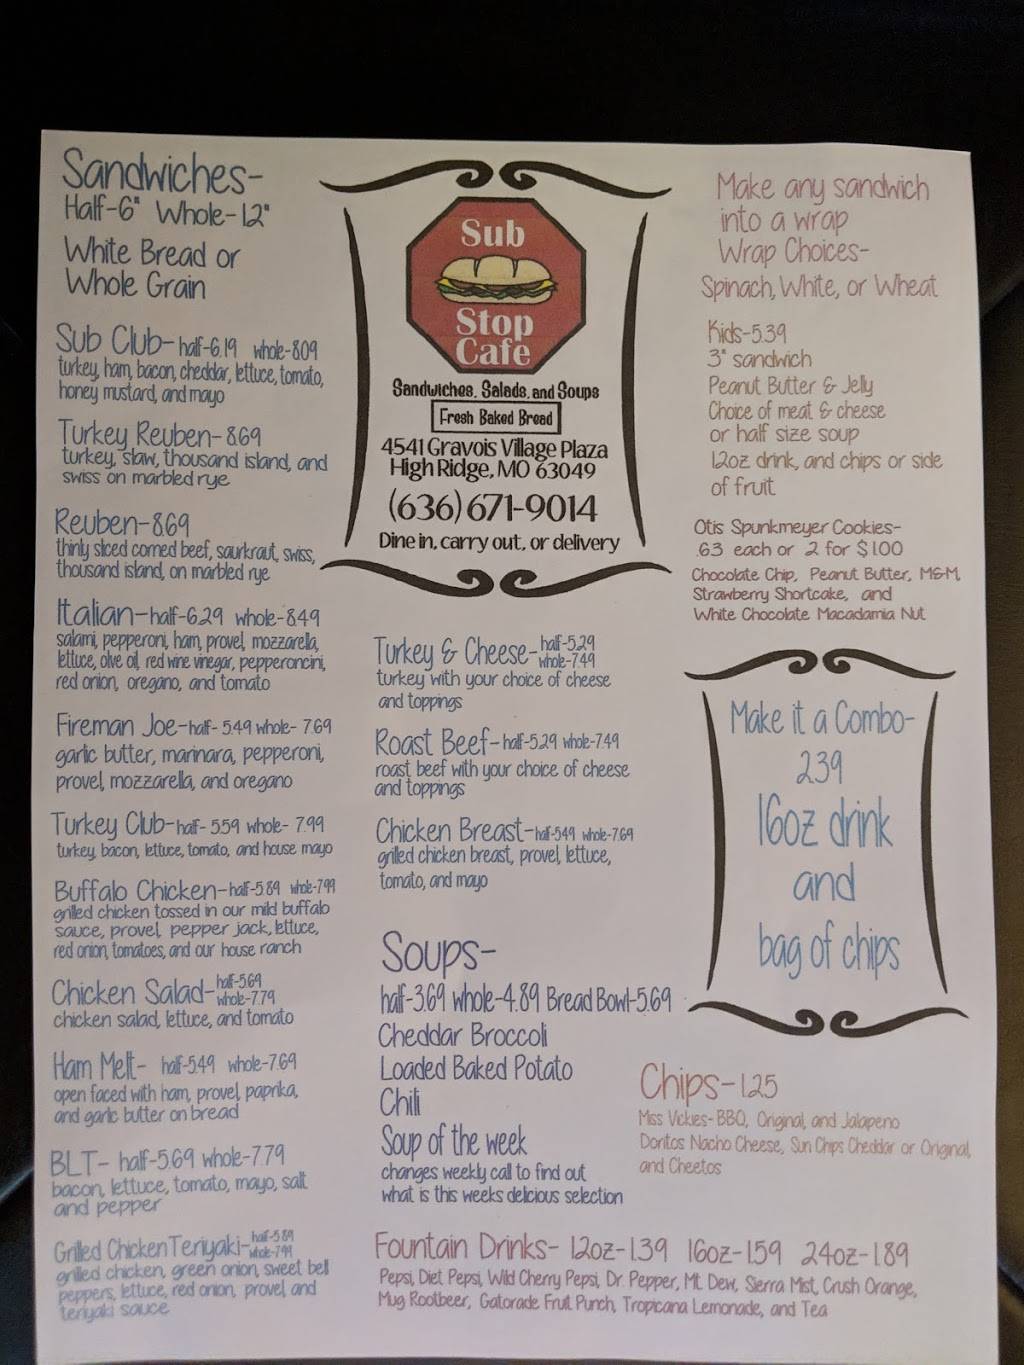 Sandwiches-
Half-6" Whole-12"
White Bread or
Whole Grain
Sub Club- half-6.19 whole-8.09
turkey, ham, bacon, cheddar, lettuce, tomato,
honey mustard, and mayo
Turkey Reuben- 8.69
turkey, slaw, thousand island, and
swiss on marbled rye
Reuben-8.69
thinly sliced corned beef, saurkraut, swiss,
thousand island, on marbled rye
Italian-half-6.29 whole-8.49
salami, pepperoni, ham, provel, mozzarella,
lettuce, olive oil, red wine vinegar, pepperoncini,
red onion, oregano, and tomato
Fireman Joe-half- 5.49 whole- 7.69
garlic butter, marinara, pepperoni,
provel, mozzarella, and oregano
Turkey Club-half- 5.59 whole- 7.99
turkey, bacon, lettuce, tomato, and house mayo
Buffalo Chicken-half-5.89 whole-7.99
grilled chicken tossed in our mild buffalo
sauce, provel, pepper jack, lettuce,
red onion, tomatoes, and our house ranch
Chicken Salad-half-5.69
whole-7.79
chicken salad, lettuce, and tomato
Ham Melt- half-5.49 whole-7.69
open faced with ham, provel, paprika,
and garlic butter on bread
BLT- half-5.69 whole-7.79
bacon, lettuce, tomato, mayo, salt
and pepper
Grilled Chicken Teriyaki-half-5.89
whole-7.99
grilled chicken, green onion, sweet bell
peppers, lettuce, red onion, provel, and
teriyaki sauce
Sub
Stop
Cafe
Sandwiches, Salads, and Soups
Fresh Baked Bread
4541 Gravois Village Plaza
High Ridge, MO 63049
(636) 671-9014
Dine in, carry out, or delivery
Turkey & Cheese-half-5.29
whole-7.49
turkey with your choice of cheese
and toppings
Roast Beef-half-5.29 whole-7.49
roast beef with your choice of cheese
and toppings
Chicken Breast-half-5.49 whole-7.69
grilled chicken breast, provel, lettuce,
tomato, and mayo
Soups-
half-3.69 whole-4.89 Bread Bowl-5.69
Cheddar Broccoli
Loaded Baked Potato
Chili
Soup of the week
changes weekly call to find out
what is this weeks delicious selection
Make any sandwich
into a wrap
Wrap Choices-
Spinach, White, or Wheat
Kids-5.39
3" sandwich
Peanut Butter & Jelly
Choice of meat & cheese
or half size soup
12oz drink, and chips or side
of fruit
Otis Spunkmeyer Cookies-
.63 each or 2 for $1.00
Chocolate Chip, Peanut Butter, M&M,
Strawberry Shortcake, and
White Chocolate Macadamia Nut
Make it a Combo-
2.39
16oz drink
and
bag of chips
Chips-1.25
Miss Vickies- BBQ, Original, and Jalapeno
Doritos Nacho Cheese, Sun Chips Cheddar or Original,
and Cheetos
Fountain Drinks- 12oz-1.39 16oz-1.59 24oz-1.89
Pepsi, Diet Pepsi, Wild Cherry Pepsi, Dr. Pepper, Mt. Dew, Sierra Mist, Crush Orange,
Mug Rootbeer, Gatorade Fruit Punch, Tropicana Lemonade, and Tea